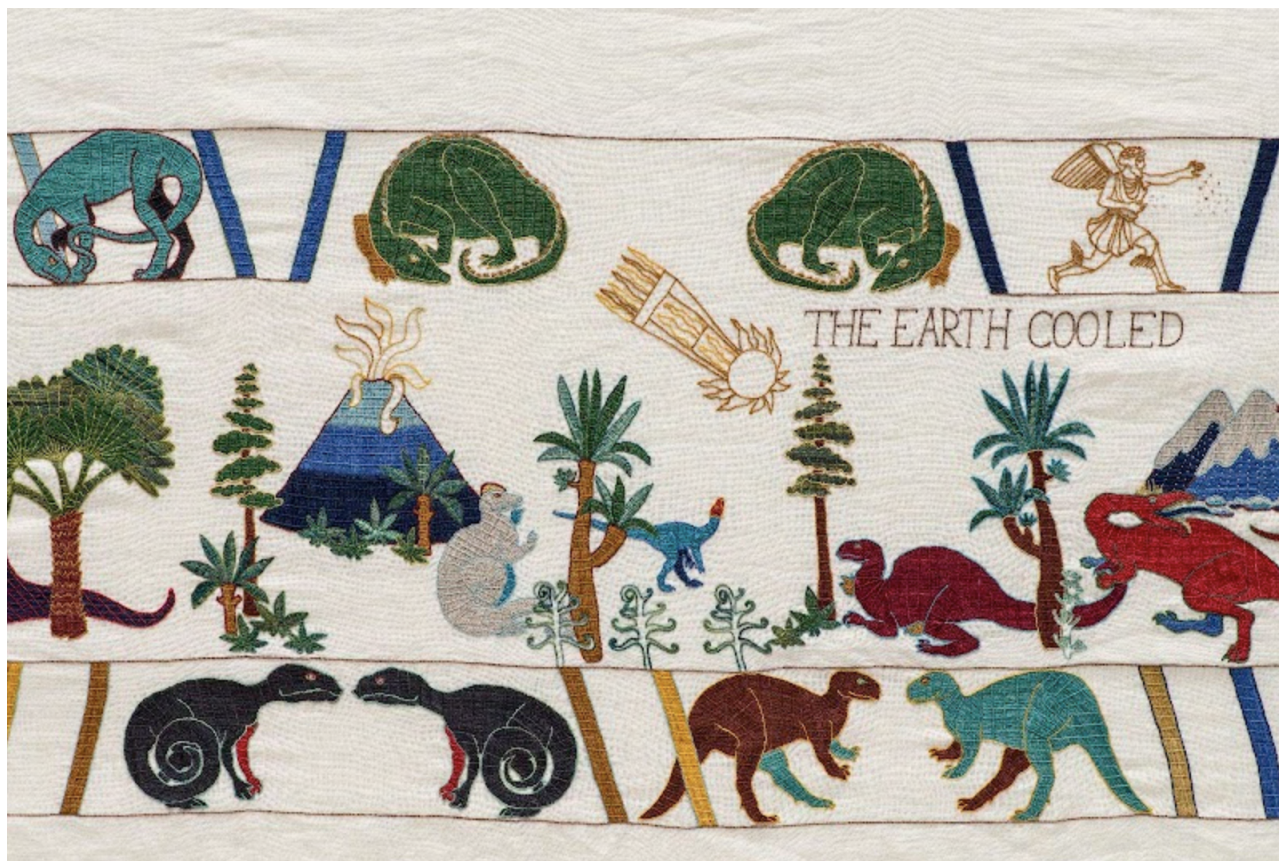 THE EARTH COOLED